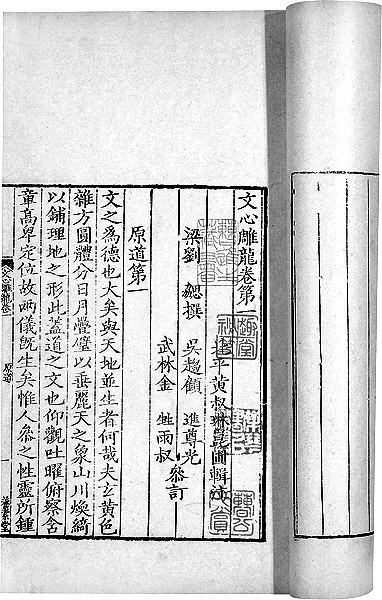 文心雕龍卷第一
平黃叔琳崑圃輯注
梁劉勰撰 吳趨顧 進尊光
武林金 甡雨叔
參訂
原道第一
文之爲德也大矣與天地並生者何哉夫玄黃色
雜方圓體分日月疊璧以垂麗天之象山川煥綺
以鋪理地之形此蓋道之文也仰觀吐曜俯察含
章高卑定位故兩儀既生矣惟人參之性靈所鍾
文心雕龍卷一
原道
一